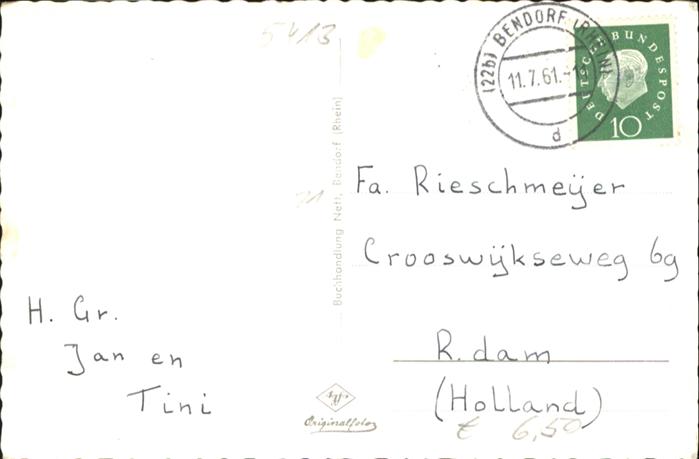 5413
(22b) BENDORF (RHEIN)
11.7.61.-
d
DEUTSCHE BUNDESPOST
10
Fa. Rieschmeijer
Crooswijkseweg 6g
R.dam
(Holland)
H. Gr.
Jan en
Tini
Buchhandlung Nett, Bendorf (Rhein)
Originalfoto
€ 6,50